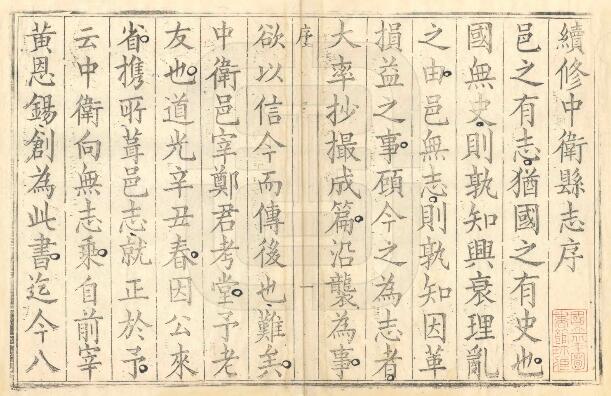 續修中衛縣志序
邑之有志猶國之有史也
國無史則孰知興衰理亂
之由邑無志則孰知因革
損益之事顧今之為志者
大率抄撮成篇沿襲為事
序
一
欲以信今而傳後也難矣
中衛邑宰鄭君考堂予老
友也道光辛丑春因公來
省携所葺邑志就正於予
云中衛向無志乘自前宰
黃恩錫創為此書迄今八